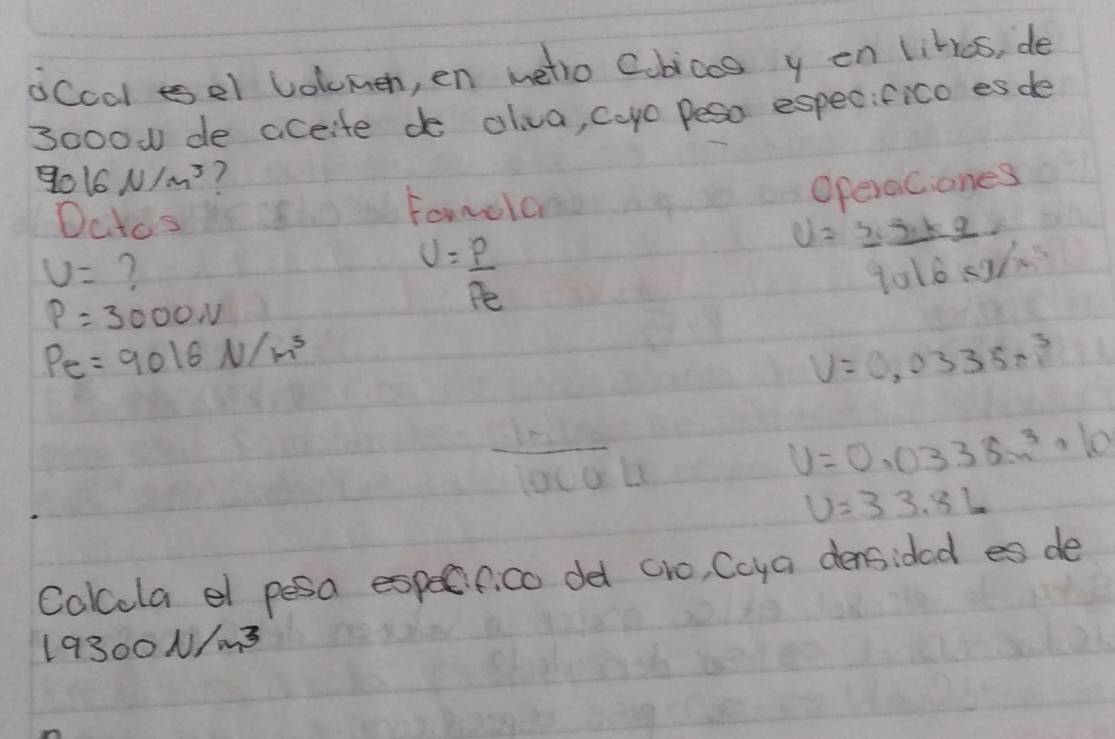 ¿Cual es el Volumen, en metro Cubicos y en litros, de
3000N de aceite de oliva, cuyo peso especifico es de
9016 N/m³?
Datos Formula Operaciones
V= ? V= P/Pe V=
P = 3000N 9016 kg/m³
Pe= 9016 N/m³ V= 0,0338m³
V= 0.0338m³ · 10
V= 33.8L
Calcula el peso especifico del oro, Cuya densidad es de
19300 N/m³